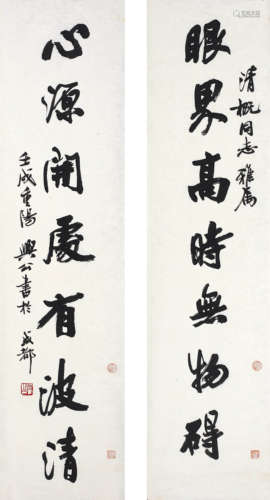 清概同志雅属
眼界高時無物碍
心源開處有波清
壬戌重陽興公書於成都